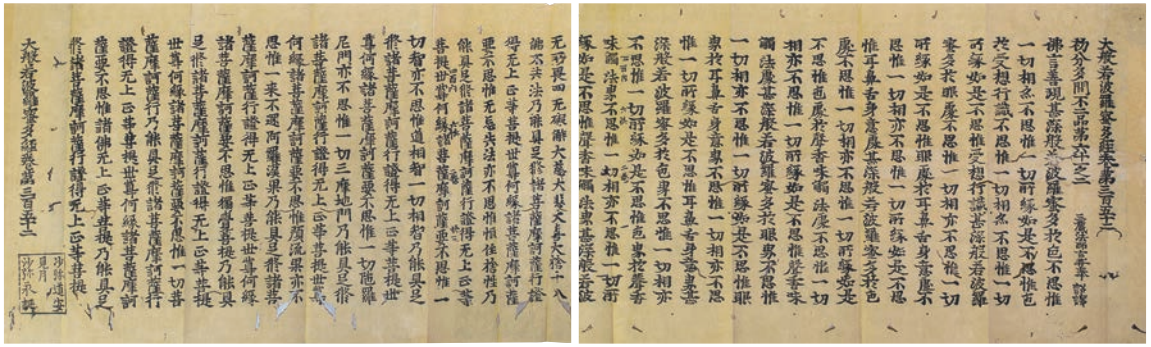 大般若波羅蜜多經卷第三百五十二
初分多問不二品第六十一之二 三藏法師玄奘奉 詔譯
佛言善現甚深般若波羅蜜多於色不思惟
一切相亦不思惟一切所緣如是不思惟色
於受想行識不思惟一切相亦不思惟一切
所緣如是不思惟受想行識甚深般若波羅
蜜多於眼處不思惟一切相亦不思惟一切
所緣如是不思惟眼處於耳鼻舌身意處不
思惟一切相亦不思惟一切所緣如是不思
惟耳鼻舌身意處甚深般若波羅蜜多於色
處不思惟一切相亦不思惟一切所緣如是
不思惟色處於聲香味觸法處不思惟一切
相亦不思惟一切所緣如是不思惟聲香味
觸法處甚深般若波羅蜜多於眼界不思惟
一切相亦不思惟一切所緣如是不思惟眼
界於耳鼻舌身意界不思惟一切相亦不思
惟一切所緣如是不思惟耳鼻舌身意界甚
深般若波羅蜜多於色界不思惟一切相亦
不思惟一切所緣如是不思惟色界於聲香
味觸法界不思惟一切相亦不思惟一切所
緣如是不思惟聲香味觸法界甚深般若波
无所畏四无礙解大慈大悲大喜大捨十八
佛不共法乃能具足修諸菩薩摩訶薩行證
得无上正等菩提世尊何緣諸菩薩摩訶薩
要不思惟无忘失法亦不思惟恒住捨性乃
能具足修諸菩薩摩訶薩行證得无上正等
菩提世尊何緣諸菩薩摩訶薩要不思惟一
切智亦不思惟道相智一切相智乃能具足
修諸菩薩摩訶薩行證得无上正等菩提世
尊何緣諸菩薩摩訶薩要不思惟一切陁羅
尼門亦不思惟一切三摩地門乃能具足修
諸菩薩摩訶薩行證得无上正等菩提世尊
何緣諸菩薩摩訶薩要不思惟預流果亦不
思惟一來不還阿羅漢果乃能具足修諸菩
薩摩訶薩行證得无上正等菩提世尊何緣
諸菩薩摩訶薩要不思惟獨覺菩提乃能具
足修諸菩薩摩訶薩行證得无上正等菩提
世尊何緣諸菩薩摩訶薩要不思惟一切菩
薩摩訶薩行乃能具足修諸菩薩摩訶薩行
證得无上正等菩提世尊何緣諸菩薩摩訶
薩要不思惟諸佛无上正等菩提乃能具足
修諸菩薩摩訶薩行證得无上正等菩提
大般若波羅蜜多經卷第三百五十二
沙弥道空
見月
沙弥承